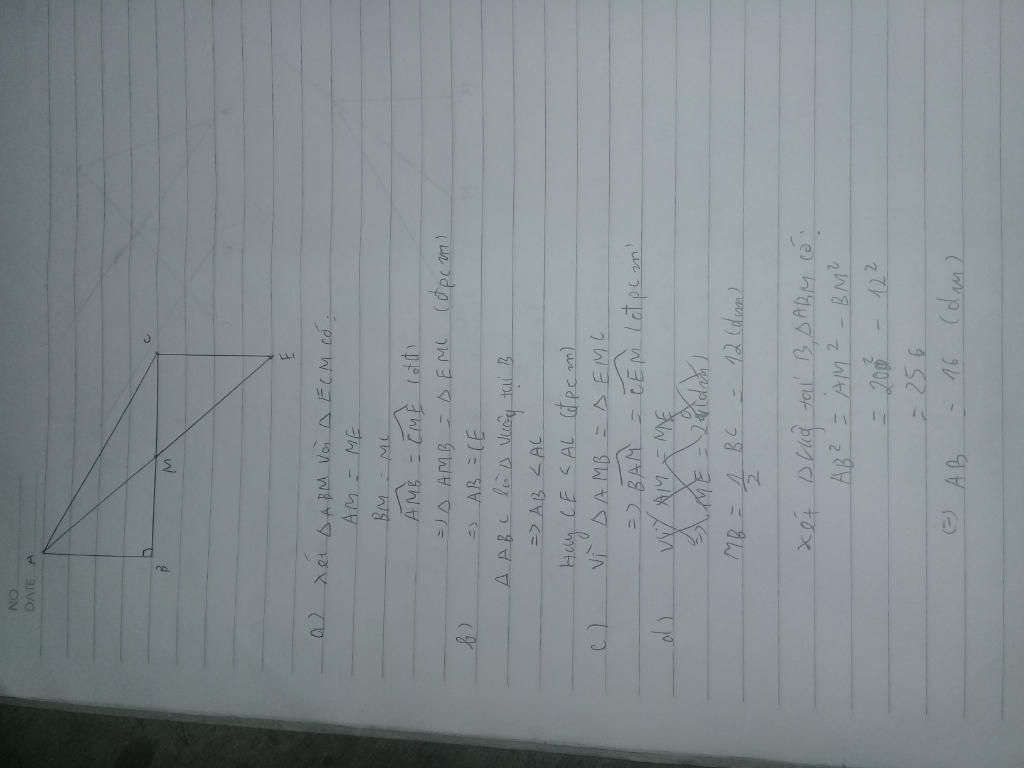 NO
DATE
A
B
M
C
E
a) Xét Δ ABM và Δ ECM có:
AM = ME
BM = MC
AMB = CME (đđ)
=> Δ AMB = Δ EMC (đpcm)
b) => AB = CE
Δ ABC là Δ vuông tại B
=> AB < AC
Hay CE < AC (đpcm)
c) Vì Δ AMB = Δ EMC
=> BAM = CEM (đpcm)
d) Vì AM = ME
=> ME = (dm)
MB = 1/2 BC = 12 (dm)
Xét Δ vuông tại B, Δ ABM có:
AB² = AM² - BM²
= 20² - 12²
= 256
(=) AB = 16 (dm)